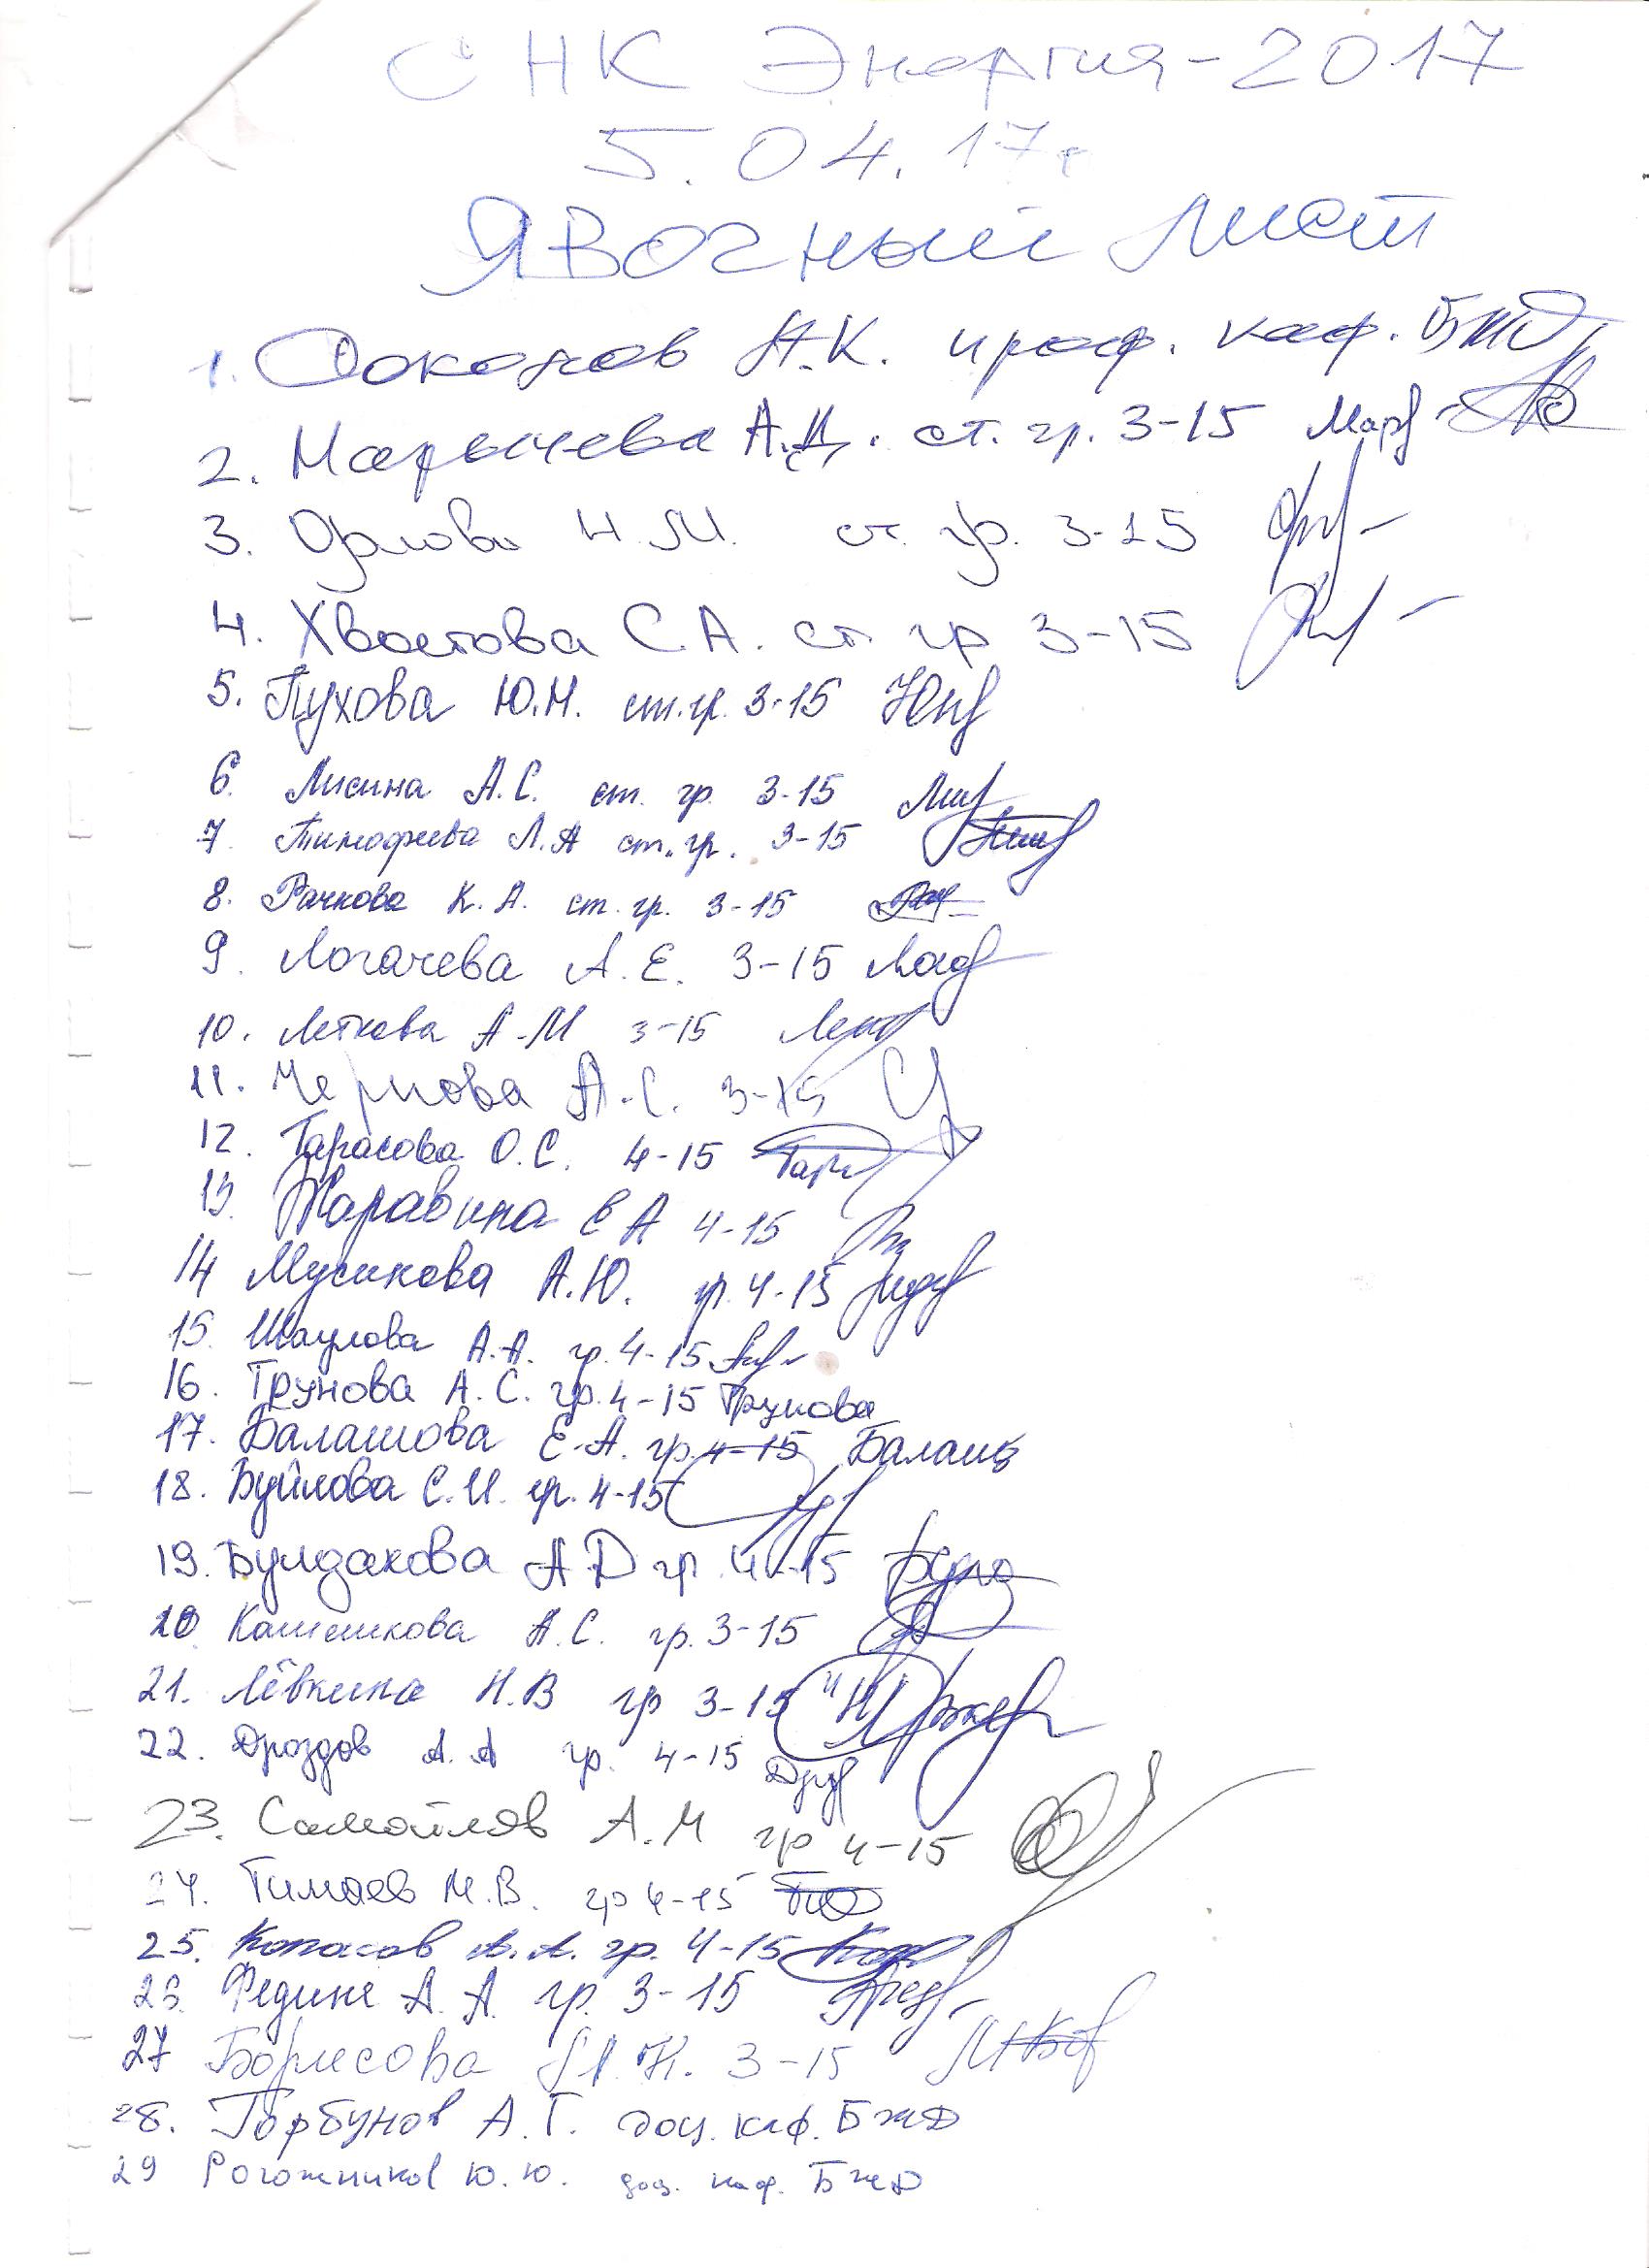 СНК Энергия-2017
5.04.17г
Явочный лист
1. Соколов А.К. проф. каф. БЖД
2. Марычева А.Д. ст. гр. 3-15
3. Орлова Н.М. ст. гр. 3-15
4. Хвостова С.А. ст гр 3-15
5. Пухова Ю.М. ст.гр. 3-15
6. Лисина А.С. ст. гр. 3-15
7. Тимофеева Л.А ст.гр. 3-15
8. Рачкова К.А. ст.гр. 3-15
9. Логачева А.Е. 3-15
10. Леткова А.М 3-15
11. Чернова А.С. 3-15
12. Тарасова О.С. 4-15
13. Жаравина Е А 4-15
14 Мусикова А.Ю. гр.4-15
15. Шаулова А.А. гр.4-15
16. Трунова А.С. гр.4-15 Трунова
17. Балашова Е.А. гр.4-15 Балаш
18. Буйлова С.И. гр.4-15
19. Булдакова А Д гр.4-15
20 А.С. гр.3-15
21. Лёвкина Н.В гр 3-15
22. Дроздов А.А гр. 4-15
23. Самойлов А.М гр 4-15
24. Тимаев М.В. гр 4-15
25. Копасов А.А. гр. 4-15
26. Федина А.А. гр. 3-15
27 Борисова М.Н. 3-15
28. Горбунов А.Г. доц. каф. БЖД
29 Рогожников Ю.Ю. доц. каф. БЖД